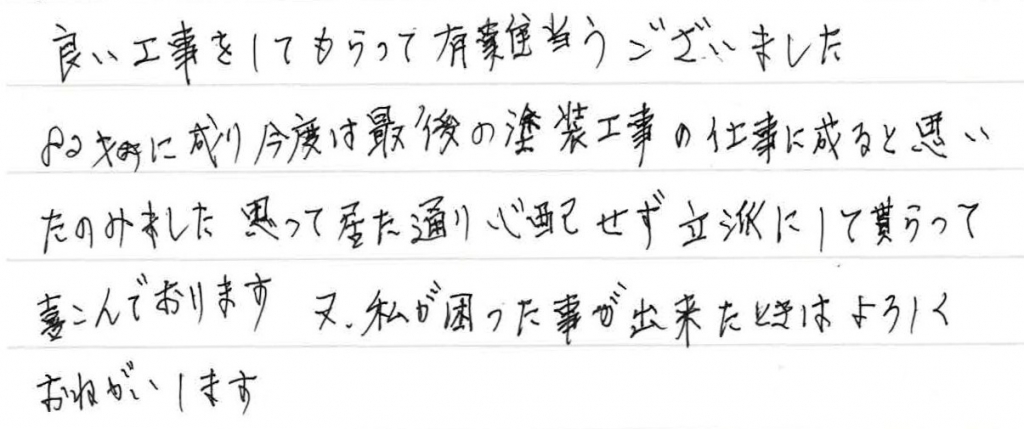 良い工事をしてもらって有難う当うございました
82才に成り今度は最後の塗装工事の仕事に成ると思い
たのみました 思って居た通り心配せず立派にして貰らって
喜こんでおります 又、私が困った事が出来たときはよろしく
おねがいします